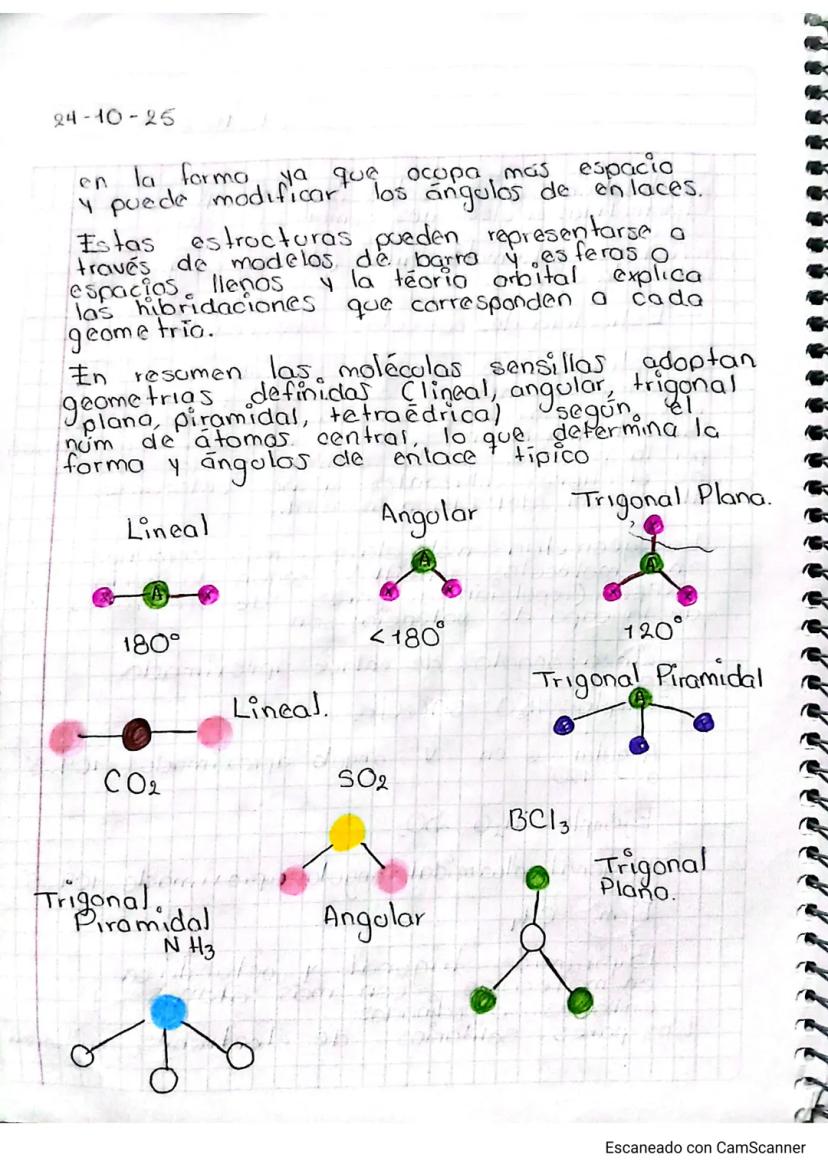 24-10-25
en la forma ya que ocupa más espacio
y puede modificar los ángulos de enlaces.
Estas estructuras pueden representarse a
través de modelos de barro y esferas o
espacios llenos y la téoria orbital explica
las hibridaciones que corresponden a cada
geometría.
En resumen las moléculas sensillas adoptan
geometrias definidas (lineal, angular, trigonal
plana, piramidal, tetraédrica) según el
núm de átomos central, lo que determina la
forma y ángulos de enlace típico
Lineal
Angular
Trigonal Plana.
X A X
A X X
X A X X
180°
<180°
120°
Trigonal Piramidal
A
Lineal.
CO2
SO2
BCl3
Trigonal
Plana.
Trigonal
Piramidal
NH3
Angular
Escaneado con CamScanner